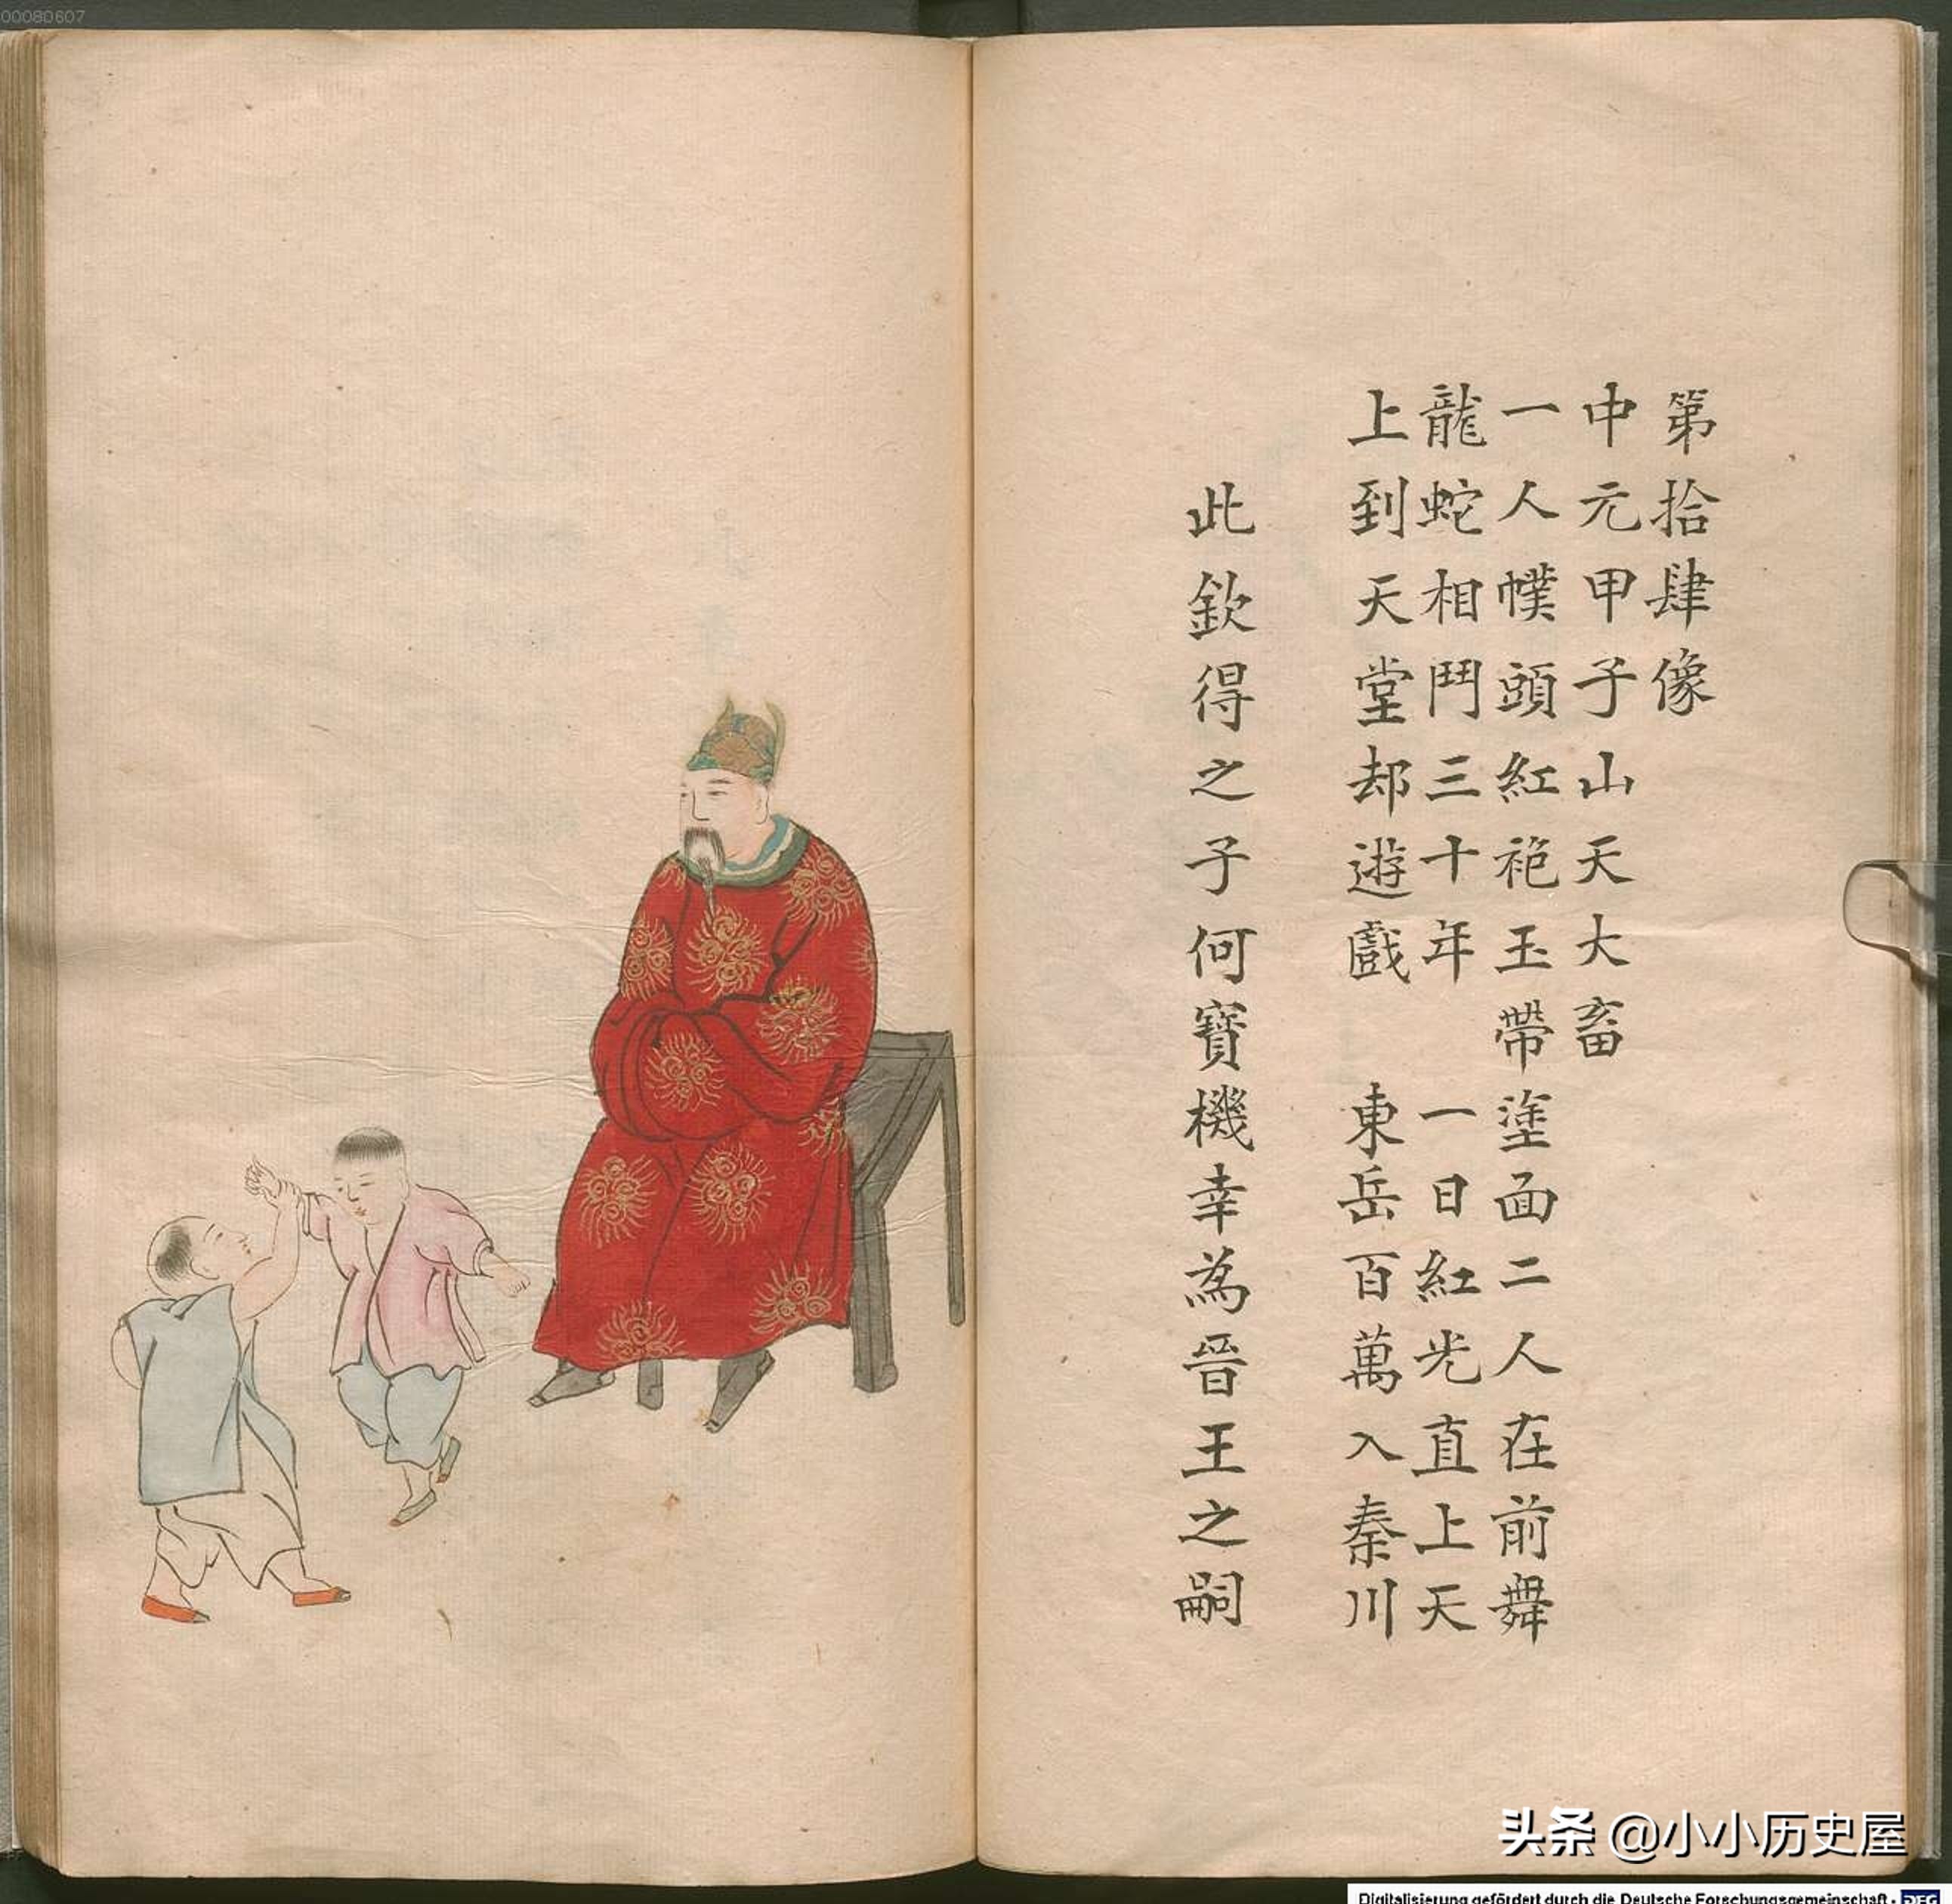 00080607
第拾肆像
中元甲子山天大畜
一人幞頭紅袍玉帶塗面二人在前舞
龍蛇相鬥三十年 一日紅光直上天
上到天堂却遊戲 東岳百萬入秦川
此欽得之子何寶機幸為晉王之嗣
头条 @小小历史屋
Digitalisierung gefördert durch die Deutsche Forschungsgemeinschaft - DFG